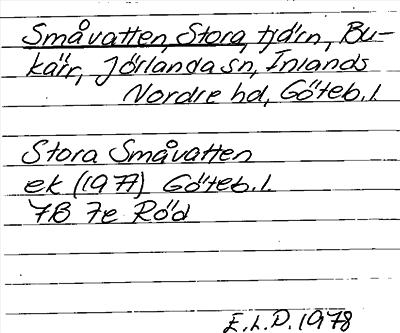 Småvatten, Stora, tjärn, Bu-
kärr, Jörlanda sn, Inlands
Nordre hd, Göteb. l.
Stora Småvatten
ek (1977) Göteb. l.
7B 7e Röd
E.L.D. 1978